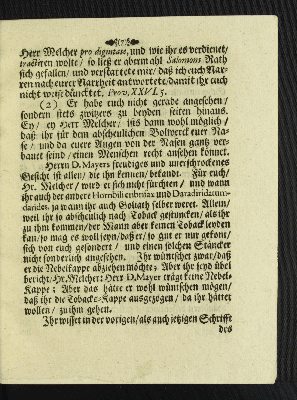 (7)
Herr Melcher pro dignitate, und wie ihr es verdienet/
tractiren wolte/ so ließ er abermahl Salomons Rath
sich gefallen/ und verstattete mir/ daß ich euch Nar-
ren nach eurer Narrheit antwortete/ damit ihr euch
nicht weise düncktet. Prov. XXVI. 5.
(2) Er habe euch nicht gerade angesehen/
sondern stets zwüers zu beyden seiten hinaus.
Ey/ ey Herr Melcher/ ists dann wohl möglich/
daß ihr für dem abscheulichen Bollwerck eurer Na-
se/ und da eurer Augen von der Nasen gantz ver-
bauet seind/ einen Menschen recht ansehen könnet.
Herrn D. Mayers freudiges und unerschrockenes
Gesicht ist allen/ die ihn kennen/ bekandt. Für euch/
Hr. Melcher/ wird er sich nicht fürchten/ und wann
ihr auch der andere Horribilicribrifax und Daradiridatum-
tarides ja wann ihr auch Goliath selber weret. Allein/
weil ihr so abscheulich nach Toback gestuncken/ als ihr
zu ihm kommen/ der Mann aber keinen Toback leyden
kan/ so mag es woll seyn/ daß er/ so gut er nur gekont/
sich von euch gesondert/ und einen solchen Stäncker
nicht sonderlich angesehen. Ihr wünschet zwar/ daß
er die Nebelkappe abziehen möchte; Aber ihr seyd übel
bericht/ Hr. Melcher: Herr D. Mayer trägt keine Nebel-
Kappe; Aber das hätte er wohl wünschen mögen/
daß ihr die Tobacks-Kappe ausgezogen/ da ihr hättet
wollen/ zu ihm gehen.
Ihr wisset in der vorigen/ als auch jetzigen Schrifft
des